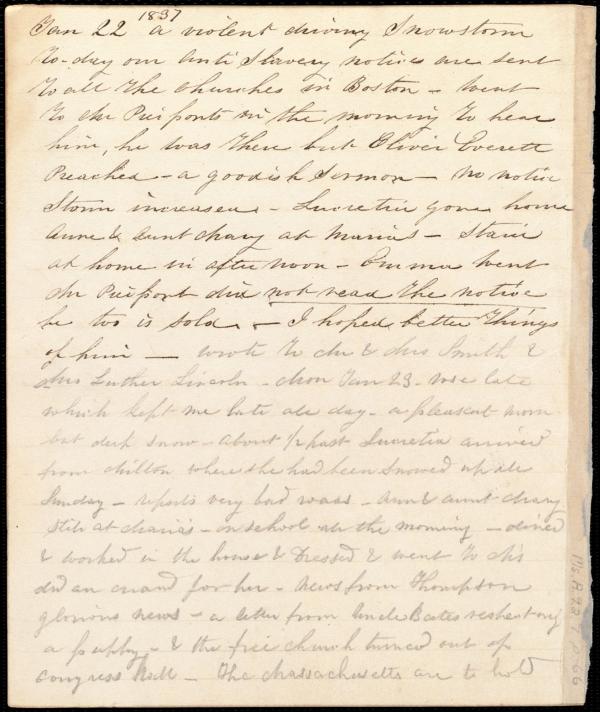 1837
Jan 22 a violent driving Snowstorm
to-day our Anti Slavery notices are sent
to all the Churches in Boston - went
to Mr Pierponts in the morning to hear
him, he was there but Oliver Everett
Preached - a goodish Sermon - no notice
Storm increased - Lucretia gone home
Anne & Aunt Mary at Maria's - Staid
at home in afternoon - Emma went
Mr Pierpont did not read the notice
he too is sold - I hoped better things
of him - wrote to Mr & Mrs Smith &
Mrs Luther Lincoln - Mon Jan 23 - rose late
which kept me late all day - a pleasant morn
but deep snow - about ½ past Lucretia arrived
from Milton where she had been snowed up all
Sunday - reports very bad roads - Ann & aunt Mary
still at Maria's - in school all the morning - dined
& worked in the house & Dressed & went to
did an errand for her - News from Thompson
glorious news - a letter from Uncle Bates respecting
a puppy - & the free church turned out of
Congress Hall - The Massachusetts are to hold
Ms.A.9.2 7 p.66